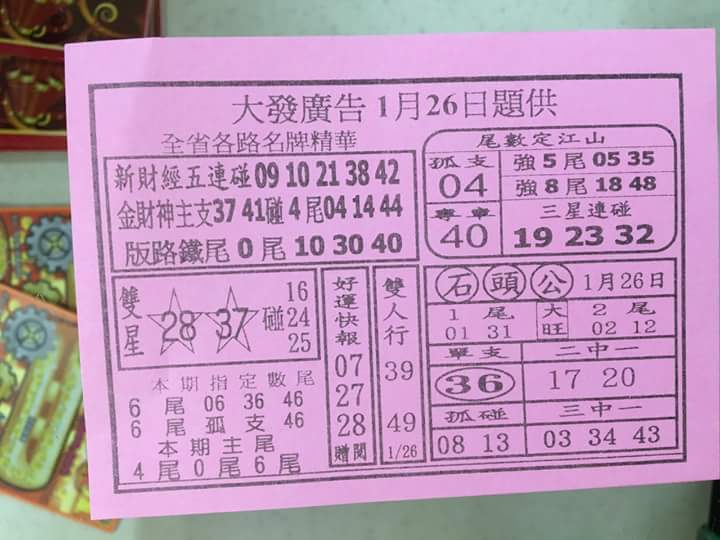 大發廣告 1月26日題供
全省各路名牌精華
新財經五連碰09 10 21 38 42
金財神主支37 41碰 4 尾04 14 44
版路鐵尾 0 尾 10 30 40
尾數定江山
孤支
04
強 5 尾 05 35
強 8 尾 18 48
專車
40
三星連碰
19 23 32
雙星
28 37
碰
16
24
25
本期指定數尾
6 尾 06 36 46
6 尾 孤 支 46
本期主尾
4 尾 0 尾 6 尾
好運快報
07
27
28
贈閱
雙人行
39
49
1/26
石頭公 1月26日
1 尾
01 31
大旺
2 尾
02 12
單支
36
二中一
17 20
孤碰
08 13
三中一
03 34 43